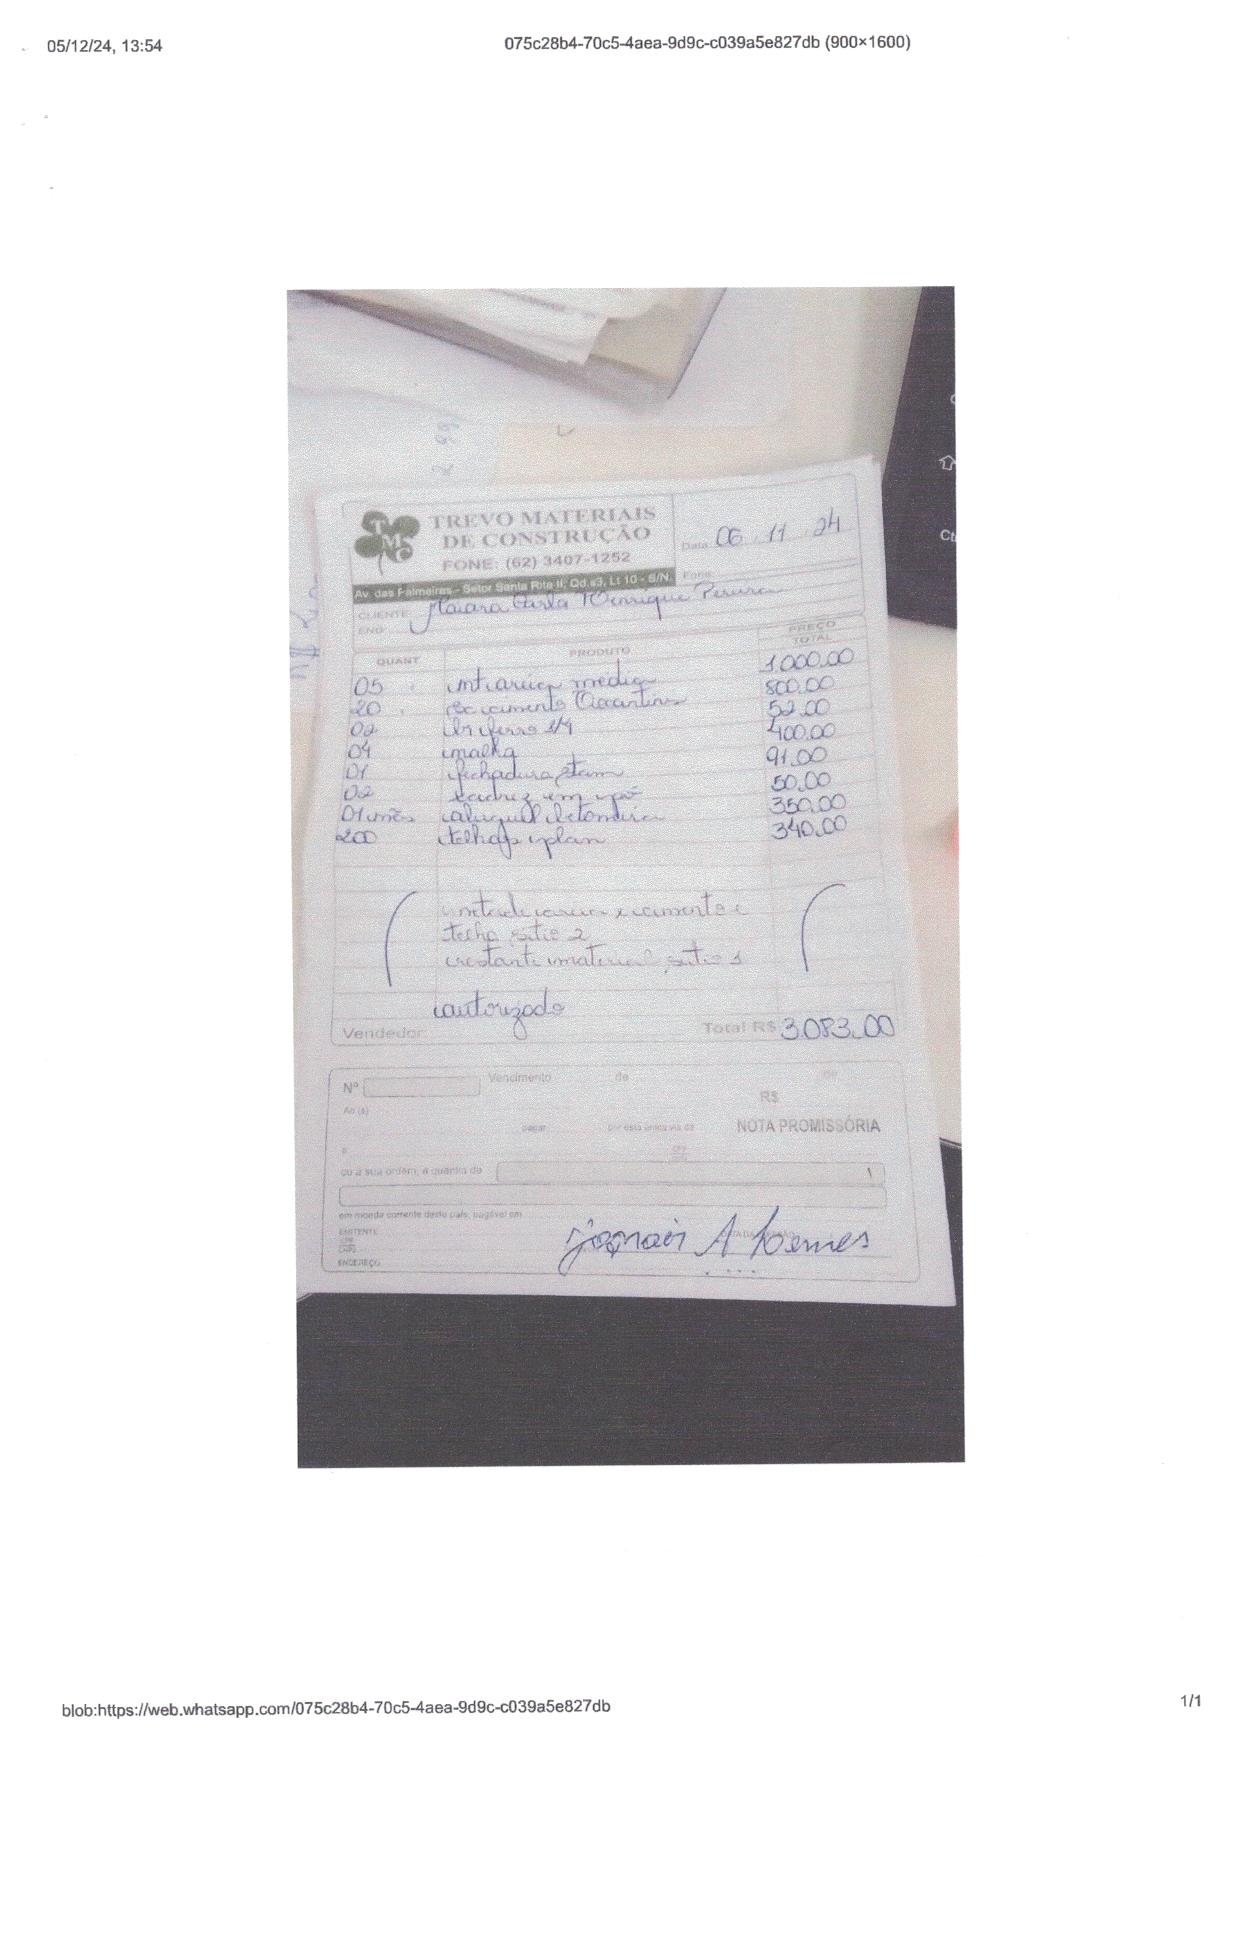 05/12/24, 13:54
075c28b4-70c5-4aea-9d9c-c039a5e827db (900×1600)
TMC
TREVO MATERIAIS
DE CONSTRUÇÃO
FONE: (62) 3407-1252
Av. das Palmeiras - Setor Santa Rita II, Qd. 83, Lt 10 - S/N.
Data 06.11.24
Fone
CLIENTE Maiara Henrique Pereira
END
QUANT. PRODUTO PREÇO TOTAL
05 mt areia media 1.000.00
20 cimento 800.00
02 ferro 1/4 52.00
04 malha 400.00
01 fechadura stam 91.00
02 xadrez em pó 50.00
01 mês aluguel betoneira 350.00
200 telhas plan 340.00
metade areia e cimento e
telha sitio 2
restante material sitio 1
autorizado
Vendedor: Total R$ 3.083.00
Nº Vencimento de de
R$
Ao (s)
pagar por esta única via de NOTA PROMISSÓRIA
ou à sua ordem, a quantia de
em moeda corrente deste país, pagável em
EMITENTE
ENDEREÇO
blob:https://web.whatsapp.com/075c28b4-70c5-4aea-9d9c-c039a5e827db
1/1